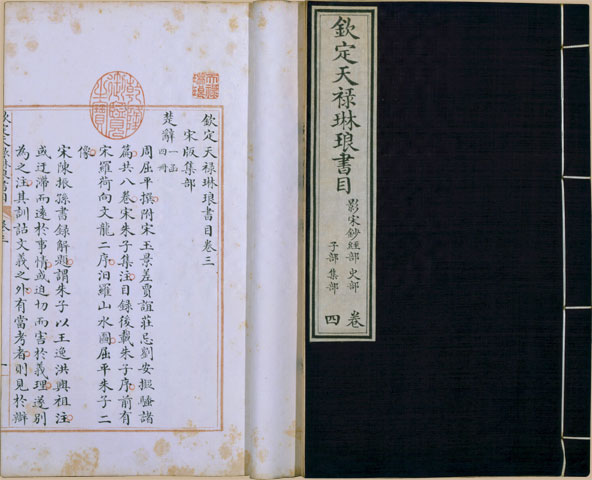 欽定天禄琳琅書目
影宋鈔經部 史部
子部 集部
卷四
乾隆御覽之寶
欽定天禄琳琅書目卷三
宋版集部
楚辭 一函四冊
周屈平撰附宋玉景差賈誼莊忌劉安擬騷諸
篇共八卷宋朱子集注目録後載朱子序前有
宋羅荷向文龍二序汨羅山水圖屈平朱子二
像
宋陳振孫書録解題謂朱子以王逸洪興祖注
或迂滯而遠於事情或迫切而害於義理遂別
為之注其訓詁文義之外有當考者則見於辯